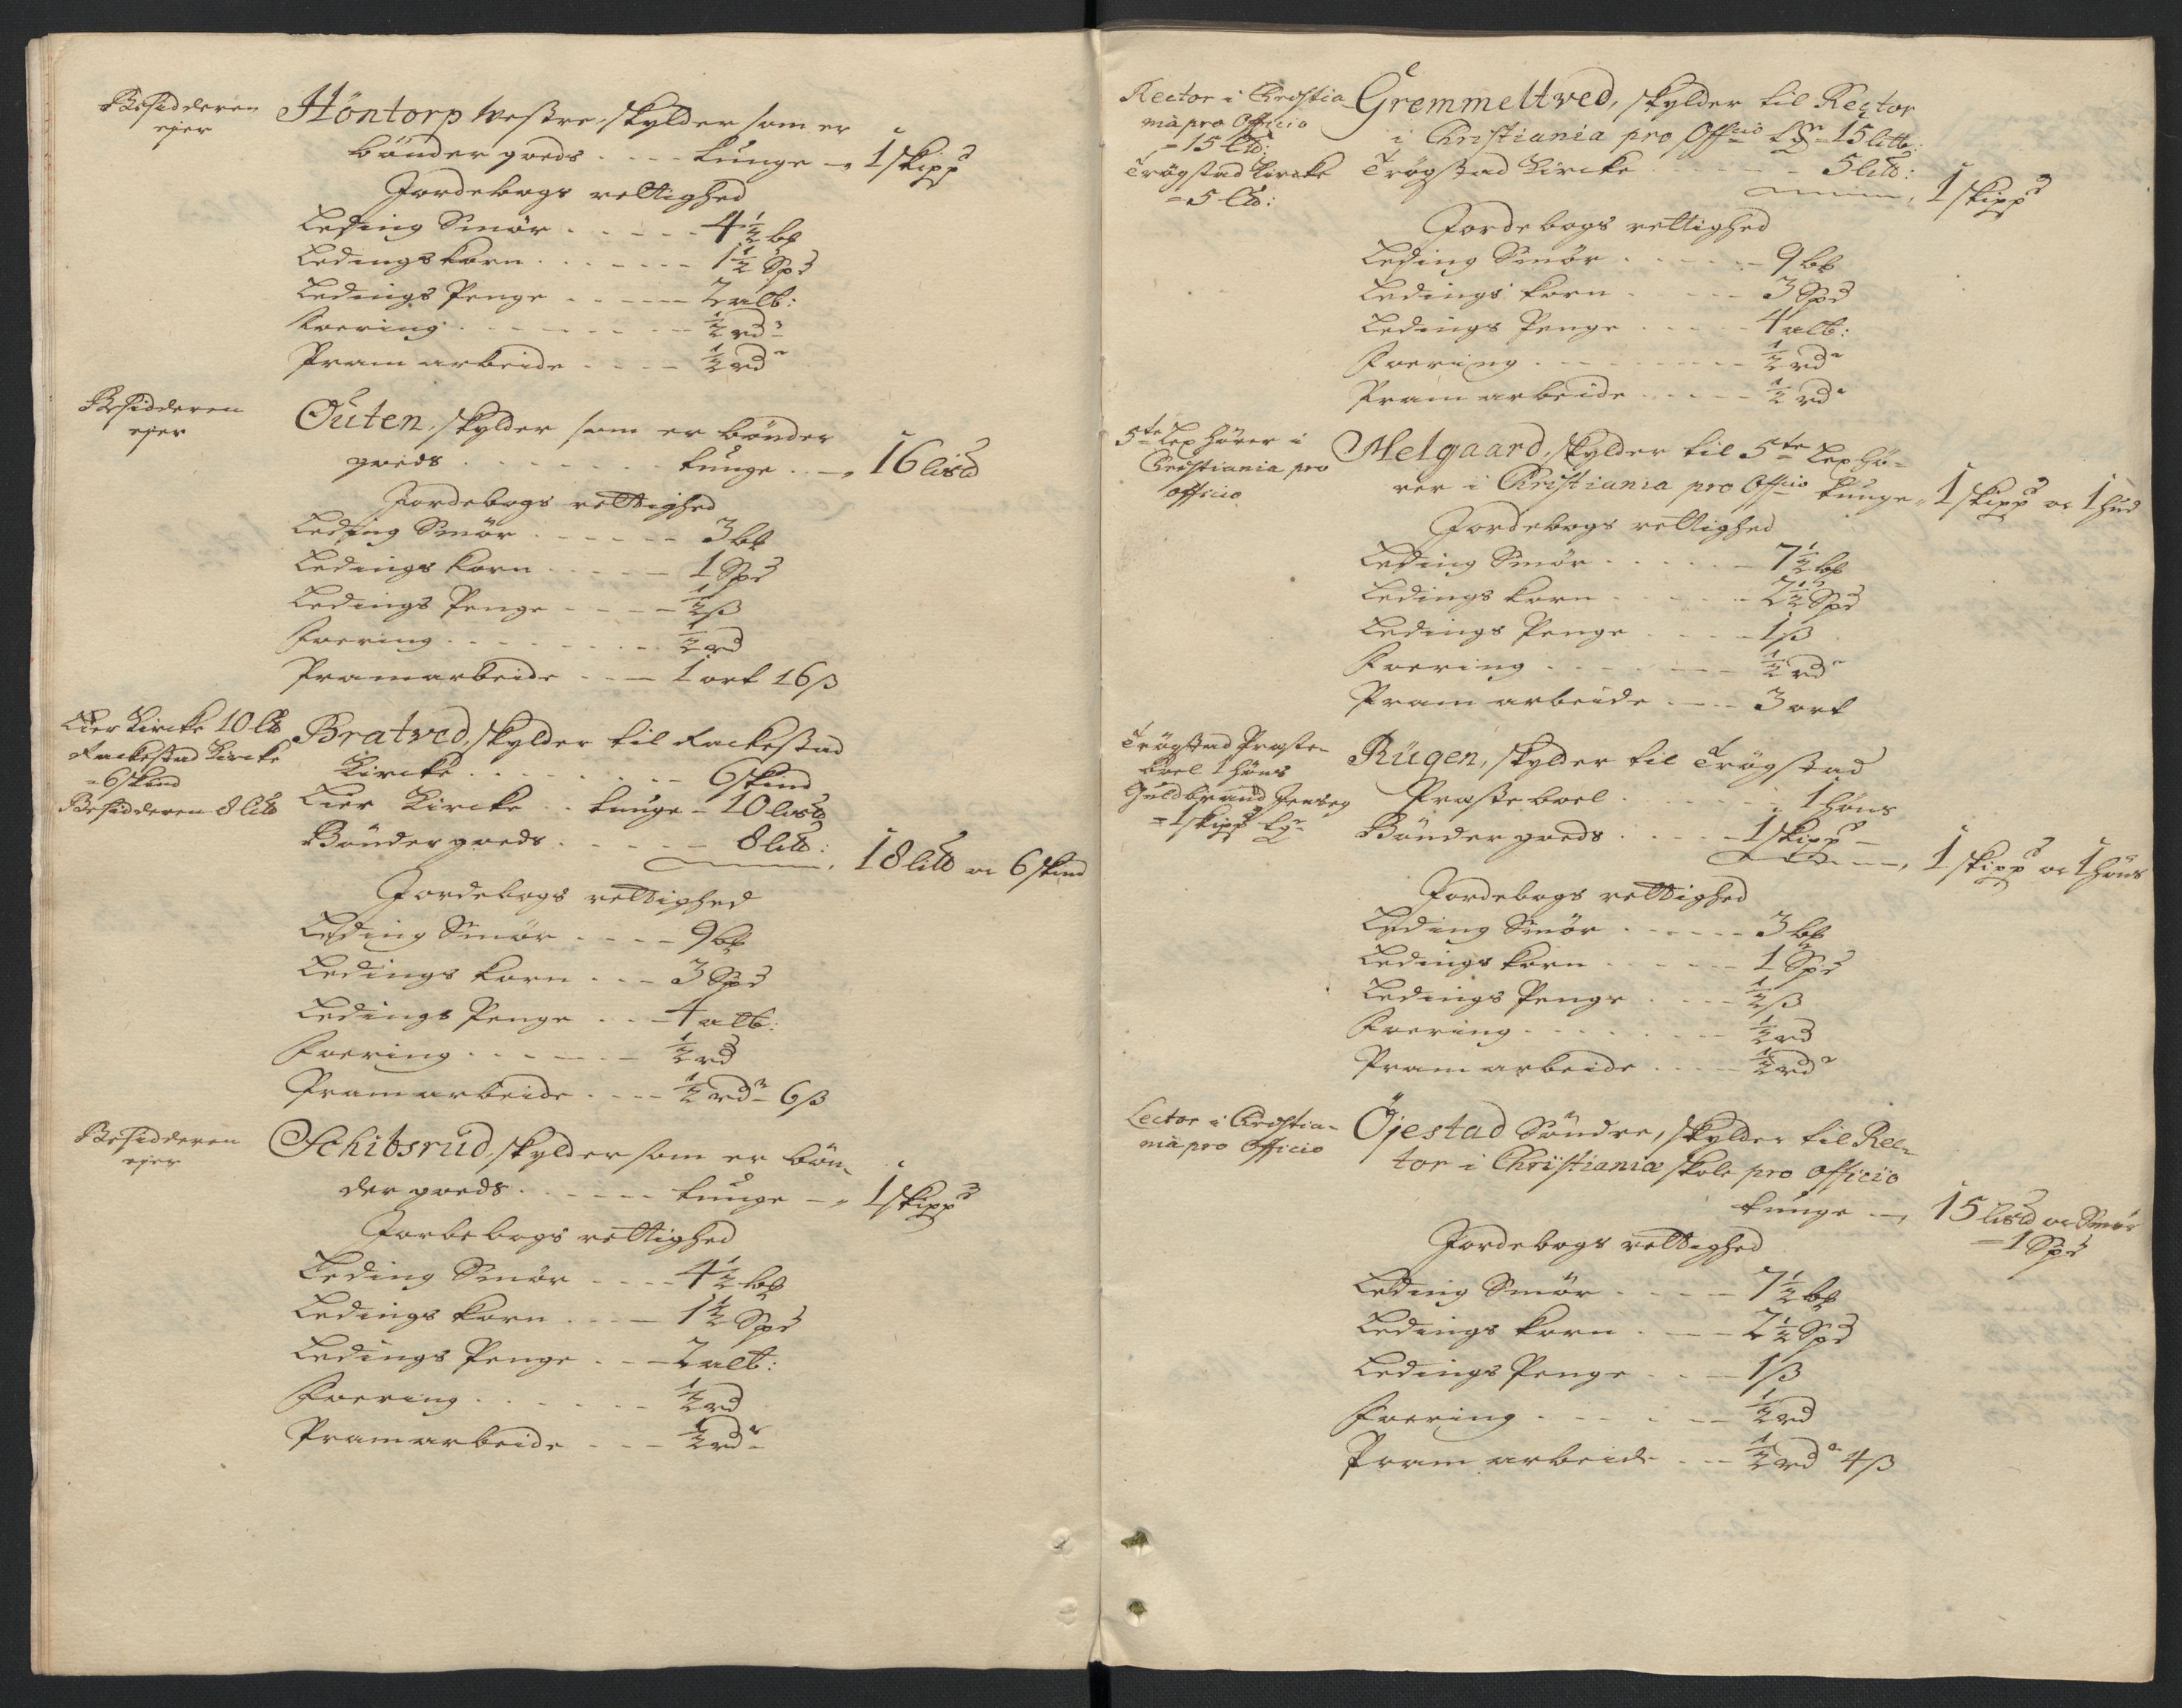 Besidderen
ejer
Höntorp Westre, skylder som er
bönder goeds . . . . tunge - 1 skippd
Jordebogs rettighed
Leding Smör . . . . . 4½ bp
Ledings korn . . . . . 1½ Spd
Ledings Penge . . . . . 2 alb:
Foering . . . . . ½ rdr
Pram arbeide . . . . ½ rdr
Besidderen
ejer
Outen, skylder som er bönder
goeds . . . . . . tunge . . 16 lisd
Jordebogs rettighed
Leding Smör . . . . . 3 bp
Ledings korn . . . . . 1 Spd
Ledings Penge . . . . ½ ß
Foering . . . . . . ½ rd
Pramarbeide . . . 1 ort 16 ß
Lier Kircke 10 lb
Rackestad Kircke
= 6 skind
Besidderen 8 litb
Bratved, skylder til Rackestad
Kircke . . . . . . . 6 skind
Lier Kircke . . tunge - 10 lisd
Bönder goeds . . . . . 8 litb:
18 litb oc 6 skind
Jordebogs rettighed
Leding Smör . . . . 9 bp
Ledings korn . . . 3 Spd
Ledings Penge . . . 4 alb:
Foering . . . . . . ½ rd
Pramarbeide . . . . ½ rdr 6 ß
Besidderen
ejer
Schibsrud, skylder som er bön-
der goeds . . . . . . tunge - 1 skippd
Jorbebogs rettighed
Leding Smör . . . . 4½ bp
Ledings korn . . . . 1½ Spd
Ledings Penge . . . 2 alb:
Foering . . . . . . ½ rd
Pramarbeide . . . ½ rdr
Rector i Christia
nia pro Officio
= 15 lb:
Trögstad Kircke
= 5 lb:
Gremmeltved, skylder til Rector
i Christiania pro Offcio 15 litb:
Trögstad Kircke . . . . . . 5 litb:
1 skippd
Jordebogs rettighed
Leding Smör . . . . . 9 bp
Ledings korn . . . . 3 Spd
Ledings Penge . . . . 4 alb:
Foering . . . . . . . ½ rdr
Pram arbeide . . . . . ½ rdr
5te Lex hörer i
Christiania pro
officio
Melgaard, skylder til 5te Lex hö-
rer i Christiania pro Offcio tunge - 1 skippd oc 1 hud
Jordebogs rettighed
Leding Smör . . . . . 7½ bp
Ledings korn . . . . . 2½ Spd
Ledings Penge . . . . 1 ß
Foering . . . . . . ½ rdr
Pram arbeide . . . . 3 ort
Trögstad Præste-
boel 1 höns
Guldbrand Jenseg
= 1 skippd
Rügen, skylder til Trögstad
Præsteboel . . . . . . 1 höns
Bönder goeds . . . . . 1 skippd
1 skippd oc 1 höns
Jordebogs rettighed
Leding Smör . . . . . 3 bp
Ledings korn . . . . . 1 Spd
Ledings Penge . . . . ½ ß
Foering . . . . . . . ½ rd
Pram arbeide . . . . . ½ rdr
Lector i Christia-
nia pro Officio
Öjestad Söndre, skylder til Rec-
tor i Christianiæ skole pro officio
tunge - 15 lisd oc Smör
= 1 Spd
Jordebogs rettighed
Leding Smör . . . . 7½ bp
Ledings korn . . . . 2½ Spd
Ledings Penge . . . 1 ß
Foering . . . . . . ½ rd
Pram arbeide . . . ½ rdr 4 ß